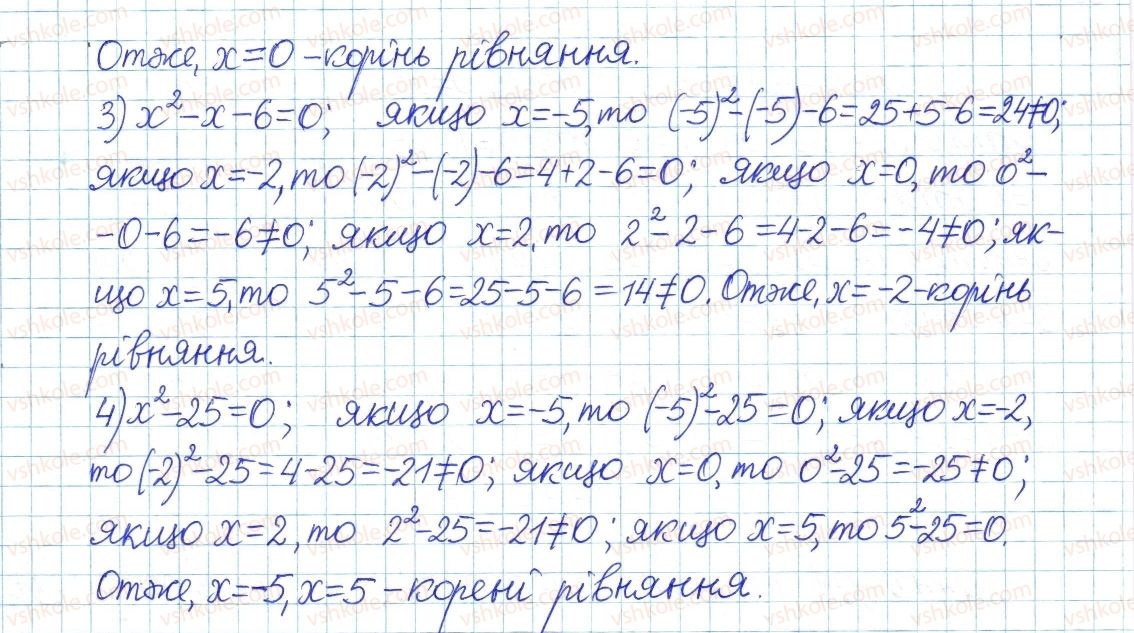 Отже, x=0 – корінь рівняння.
3) x²–x–6=0; якщо x=–5, то (–5)²–(–5)–6=25+5–6=24≠0;
якщо x=–2, то (–2)²–(–2)–6=4+2–6=0; якщо x=0, то 0²–
–0–6=–6≠0; якщо x=2, то 2²–2–6=4–2–6=–4≠0; як-
що x=5, то 5²–5–6=25–5–6=14≠0. Отже, x=–2–корінь
рівняння.
4) x²–25=0; якщо x=–5, то (–5)²–25=0; якщо x=–2,
то (–2)²–25=4–25=–21≠0; якщо x=0, то 0²–25=–25≠0;
якщо x=2, то 2²–25=–21≠0; якщо x=5, то 5²–25=0.
Отже, x=–5, x=5 – корені рівняння.
vshkole.com